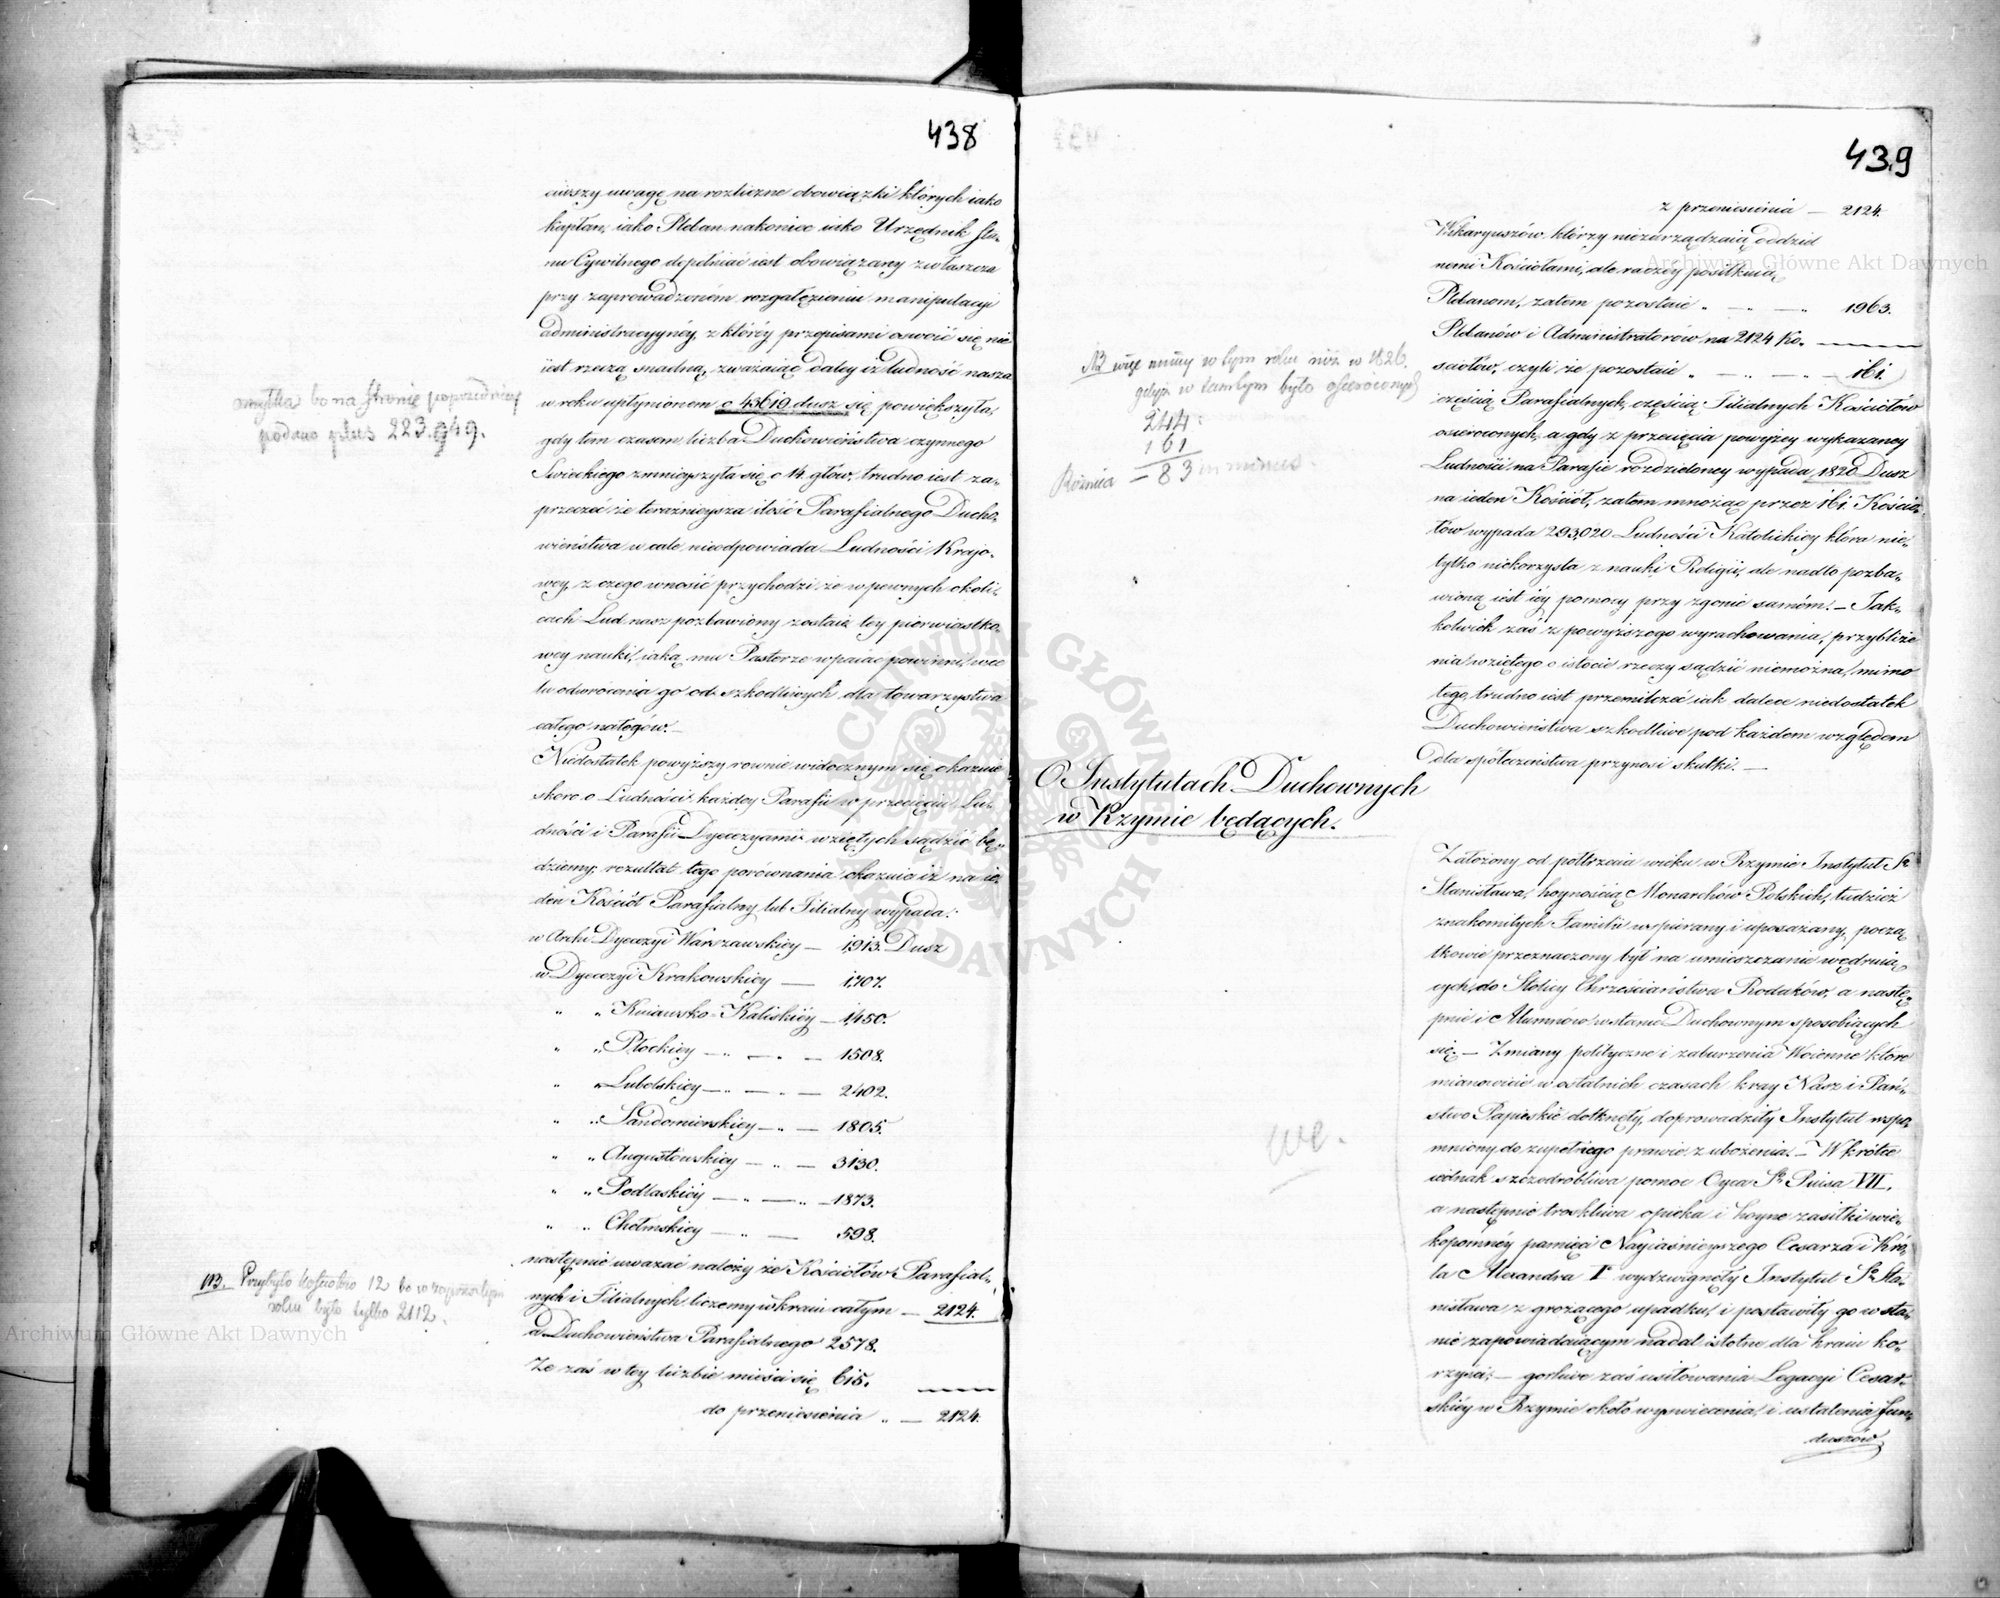 438
ciwszy uwagę na rozliczne obowiązki których iako
kapłan, iako Pleban nakoniec iako Urzędnik Sta-
nu Cywilnego dopełniać iest obowiązany zwłaszcza
przy zaprowadzoném rozgałęzieniu manipulacyi
administracyynéy, z któréy przepisami oswoić się nie
iest rzeczą snadną, zważaiąc daley iż ludność nasza
w roku upłynionem o 45619 dusz się powiększyła,
gdy tem czasem liczba Duchowieństwa czynnego
Swieckiego zmnieyszyła się o 14 głów, trudno iest za-
przeczeć że teraźnieysza ilość Parafialnego Ducho-
wieństwa w cale nieodpowiada Ludności Krajo-
wey, z czego wnosić przychodzi że w pewnych okoli-
cach Lud nasz pozbawiony zostaie tey pierwiastko-
wey nauki, iaką mu Pasterze wpaiać powinni, w ce-
lu odwrócenia go od szkodliwych dla towarzystwa
całego nałogów. —
Niedostatek powyższy rownie widocznym się okazuie
skoro o Ludności każdey Parafii w przecięciu Lu-
dności i Parafii Dyecezyami wziętych sądzić bę-
dziemy; rezultat tego porównania okazuie iż na ie-
den Kościół Parafialny lub Filialny wypada:
w Archi Dyecezyi Warszawskiey — 1,913. Dusz
w Dyecezyi Krakowskiey — 1,707.
" " Kuiawsko-Kaliskiéy — 1,450.
" " Płockiey — " — " — 1508.
" " Lubelskiey — " — " — 2402.
" " Sandomierskiey — " — 1805.
" " Augustowskiey — " — 3130.
" " Podlaskiéy — " — " — 1873.
" " Chełmskiey — " — 598.
następnie uważać należy że Kościołów Parafial-
nych i Filialnych liczemy w kraiu całym — 2124.
a Duchowieństwa Parafialnego 2578.
Że zaś w tey liczbie mieści się 615.
do przeniesienia " — 2124.
omyłka bo na stronie poprzedniey
podano plus 223.949.
NB. Przybyło kościołów 12 bo w zeprzeszłym
roku było tylko 2112.
439
z przeniesienia — 2124.
Wikaryuszów, którzy niezarządzaią oddziel
nemi Kościołami, ale raczey posiłkuią
Plebanom, zatem pozostaie " — " — 1963.
Plebanów i Administratorów na 2124 Ko-
sciołów, czyli że pozostaie " — " — " — 161.
częścią Parafialnych, częścią Filialnych Kościołów
osieroconych, a gdy z przecięcia powyżey wykazaney
Ludności na Parafie rozdzieloney wypada 1820 Dusz
na ieden Kościół, zatem mnożąc przez 161. Kościo-
łów wypada 293,020 Ludności Katolickiey która nie-
tylko niekorzysta z nauki Religii, ale nadto pozba-
wioną iest iey pomocy przy zgonie samém. — Jak-
kolwiek zaś z powyższego wyrachowania, przybliże
nia wziętego o istocie rzeczy sądzić niemożna, mimo
tego, trudno iest przemilczeć iak dalece niedostatek
Duchowieństwa szkodliwe pod każdem względem
dla społeczeństwa przynosi skutki. —
NB więc mniey w tym roku niż w 1826.
gdyż w tamtym było osieroconych
244.
161
Różnica — 83 in minus.
O Instytutach Duchownych
w Rzymie będących.
Założony od półtrzecia wieku w Rzymie Instytut Sgo
Stanisława, hoynością Monarchów Polskich, tudzież
znakomitych Familii wspierany i uposażany, począ
tkowie przeznaczony był na umieszczanie wędruią-
cych do Stolicy Chrześciaństwa Rodaków, a nastę-
pnie i Alumnów w stanie Duchownym sposobiących
się. — Zmiany polityczne i zaburzenia Woienne które
mianowicie w ostatnich czasach kray Nasz i Pań-
stwo Papieskie dotknęły, doprowadziły Instytut wspo-
mniony do zupełnego prawie zubożenia. — W krótce
iednak szczodrobliwa pomoc Oyca Sgo Piusa VII.
a następnie troskliwa opieka i hoyne zasiłki wie-
kopomnéy pamięci Nayiaśnieyszego Cesarza i Kró-
la Alexandra Igo wydzwignęły Instytut Sgo Sta-
nisława z grożącego upadku, i postawiły go w sta-
nie zapowiadaiącym nadal istotne dla kraiu ko-
rzyści; — gorliwe zaś usiłowania Legacyi Cesar-
skiéy w Rzymie około wyswiecenia i ustalenia fun-
duszów
Archiwum Główne Akt Dawnych
Archiwum Główne Akt Dawnych
ARCHIWUM GŁÓWNE AKT DAWNYCH